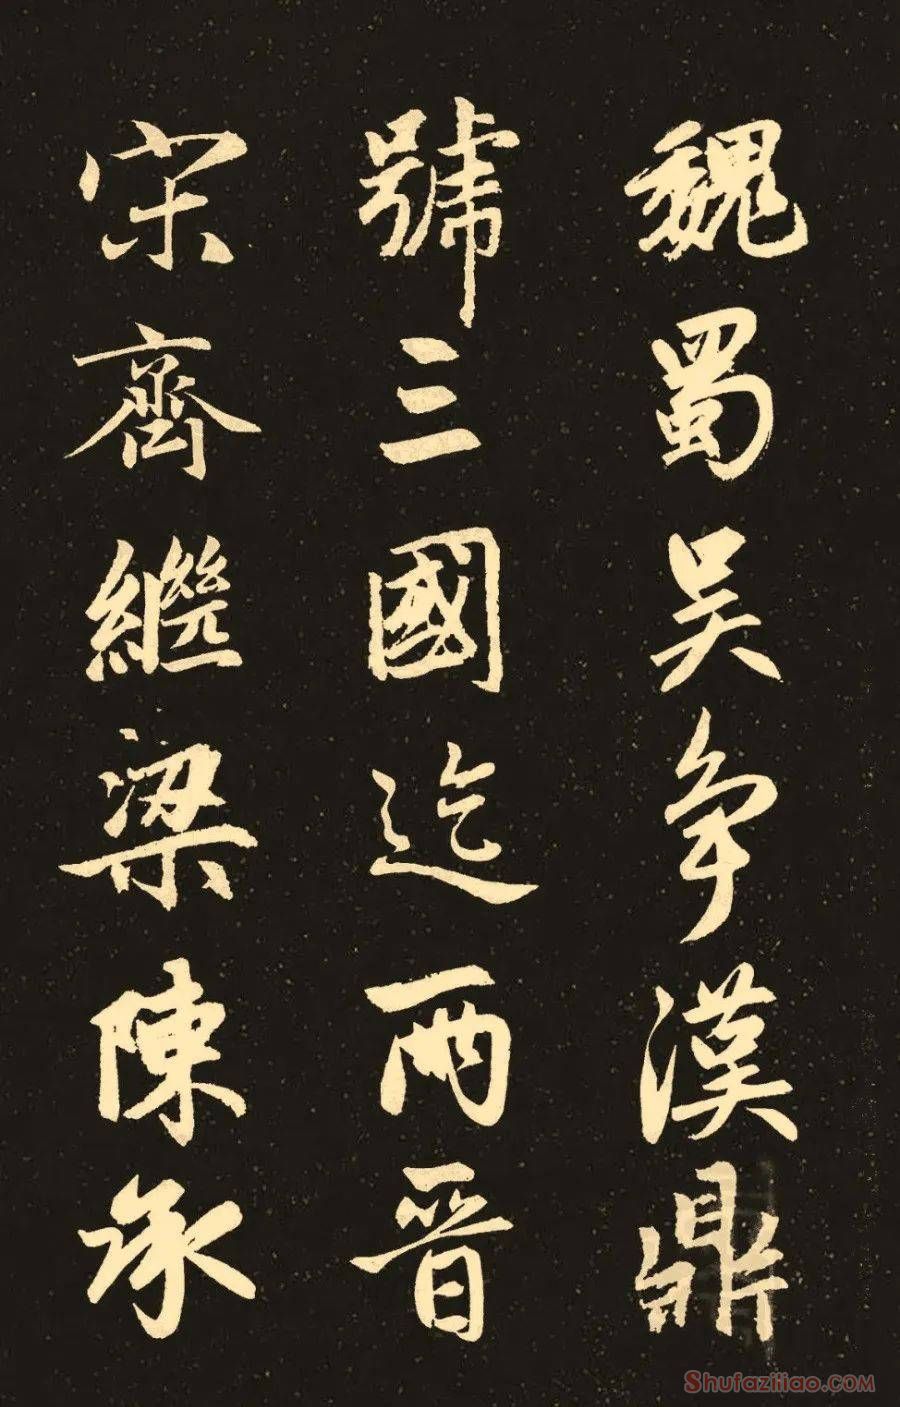 魏蜀吴争漢鼎
號三國迄兩晋
宋齊繼梁陳承
Shufaziliao.COM